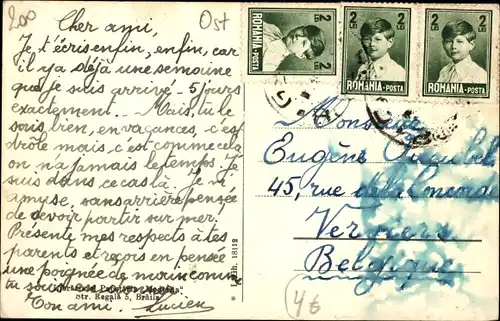 200
Ost
Cher ami,
Je t'écris enfin, enfin, car
il y a déjà une semaine
que je suis arrivé - 5 jours
exactement. Mais, tu le
sais bien, en vacances, c'est
drôle mais c'est comme cela
on n'a jamais le temps. Je
suis dans ce cas là. Je m'
amuse, sans arrière pensée
de devoir partir sur mer.
Présente mes respects à tes
parents et reçois en pensée
une poignée de main comme
tu sais
Ton ami. Lucien
Str. Regală 5, Brăila
Lith. 18112
2 LEI
ROMANIA-POSTA
2 LEI
ROMANIA-POSTA
2 LEI
ROMANIA-POSTA
Monsieur
Eugène
45, rue de la
Verviers
Belgique
4€